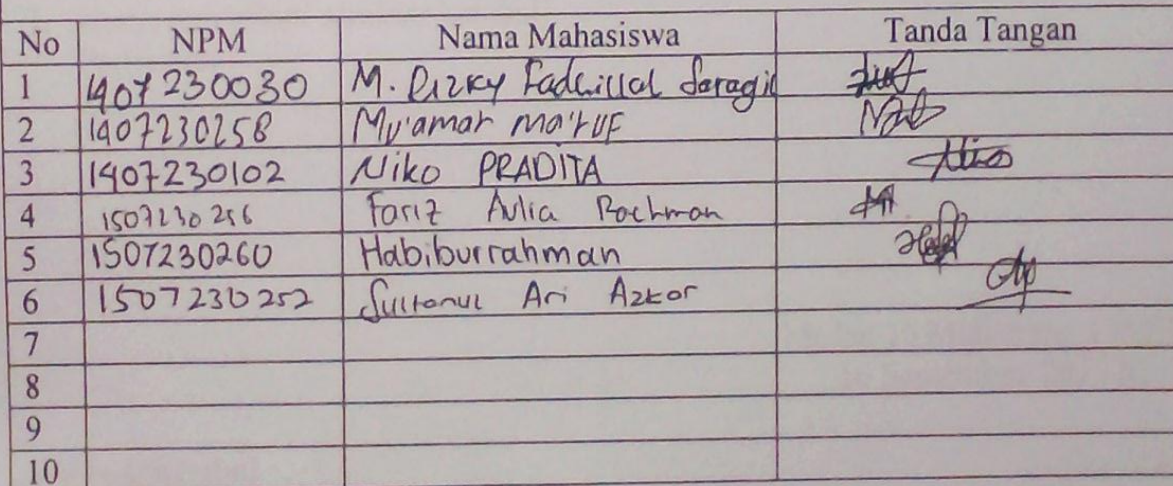 No NPM Nama Mahasiswa Tanda Tangan
1 1407230030 M. Rizky Fadhillal Saragih
2 1407230258 Mu'amar ma'ruf
3 1407230102 Niko PRADITA
4 1507230256 Fariz Aulia Rochman
5 1507230260 Habiburrahman
6 1507230252 Sultonul Ari Azkar
7
8
9
10